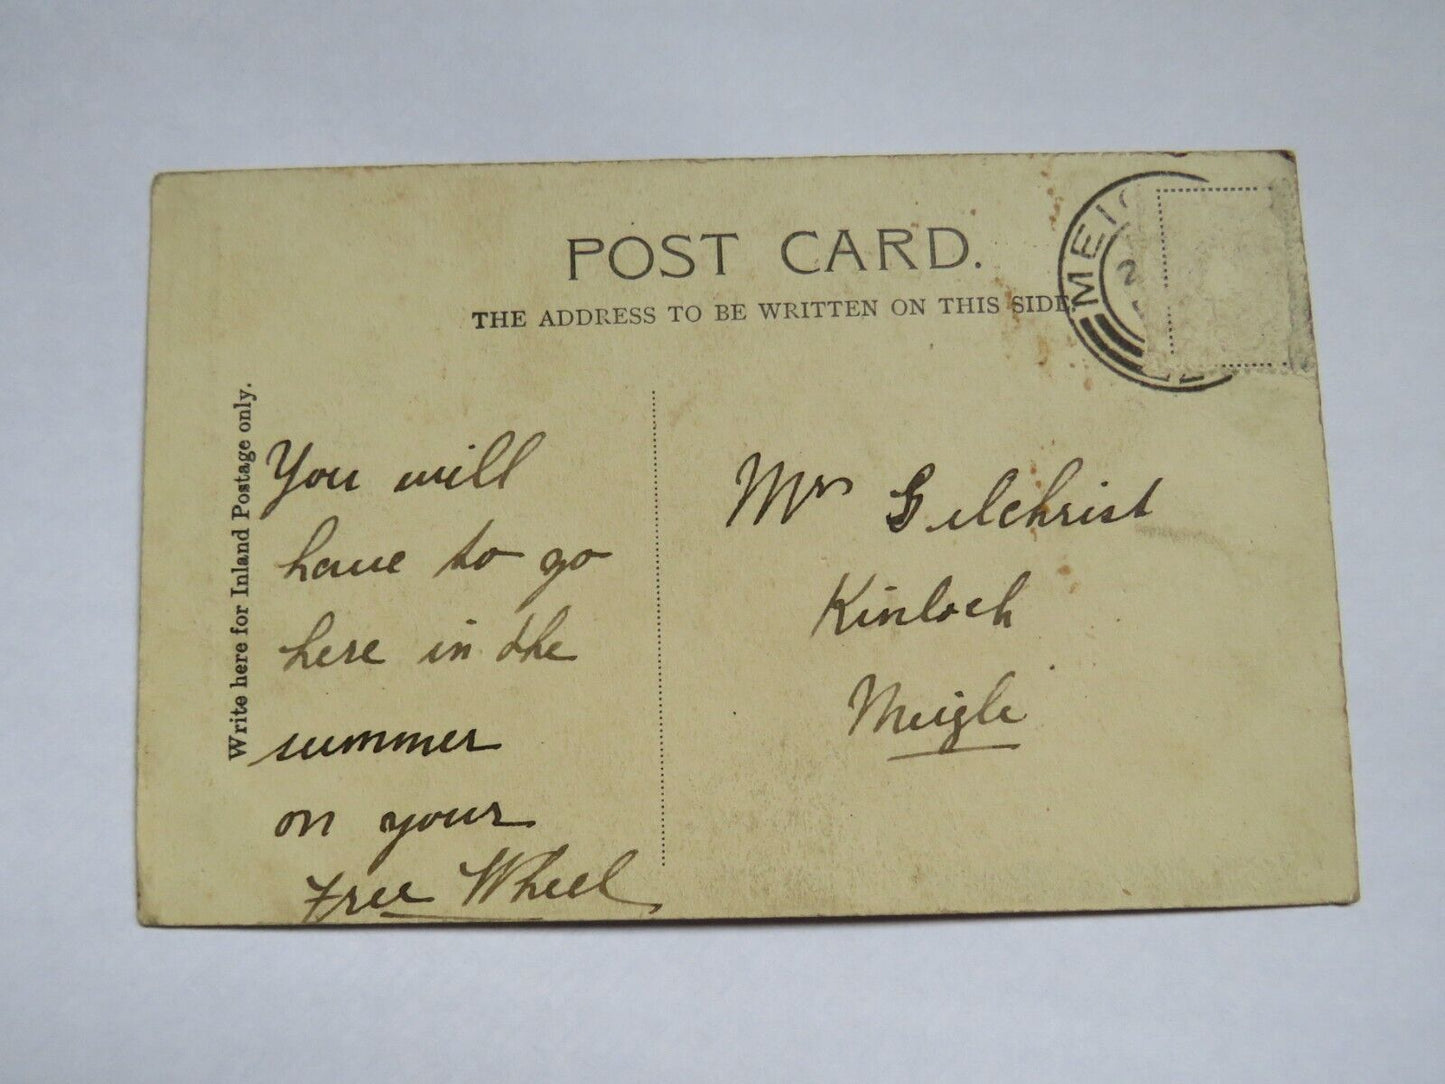 POST CARD.
THE ADDRESS TO BE WRITTEN ON THIS SIDE.
MEIG
2
Write here for Inland Postage only.
You will
have to go
here in the
summer
on your
Free Wheel
Mrs Gilchrist
Kinloch
Meigle